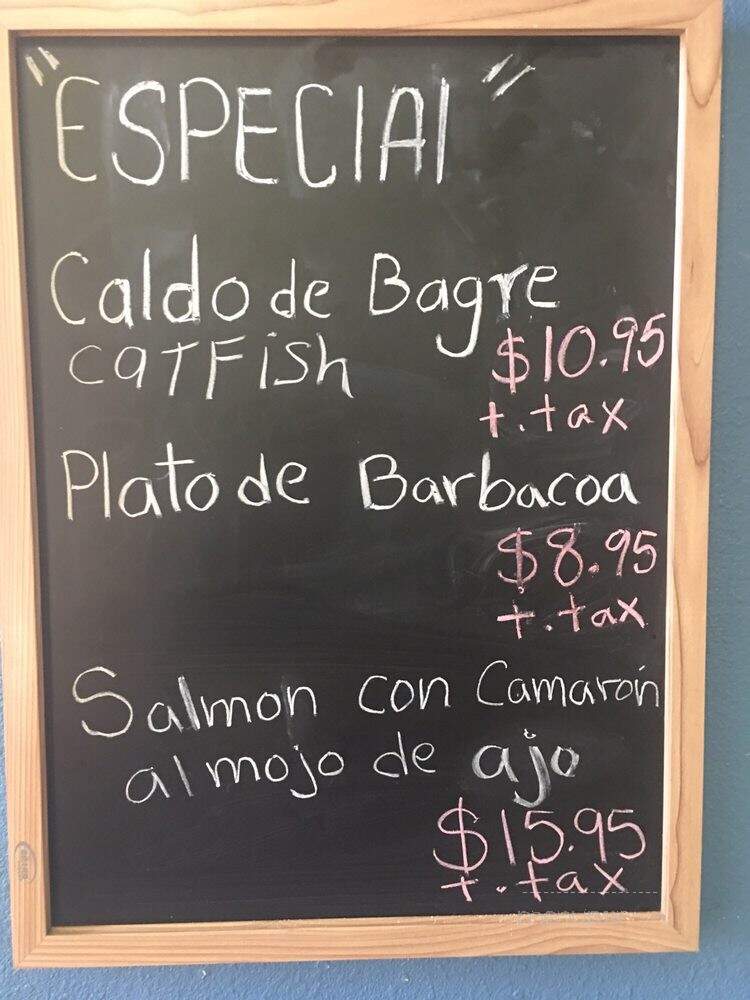 "ESPECIAl"
Caldo de Bagre
CATFish $10.95
+.tax
Plato de Barbacoa
$8.95
+.tax
Salmon con Camarón
al mojo de ajo
$15.95
+.tax